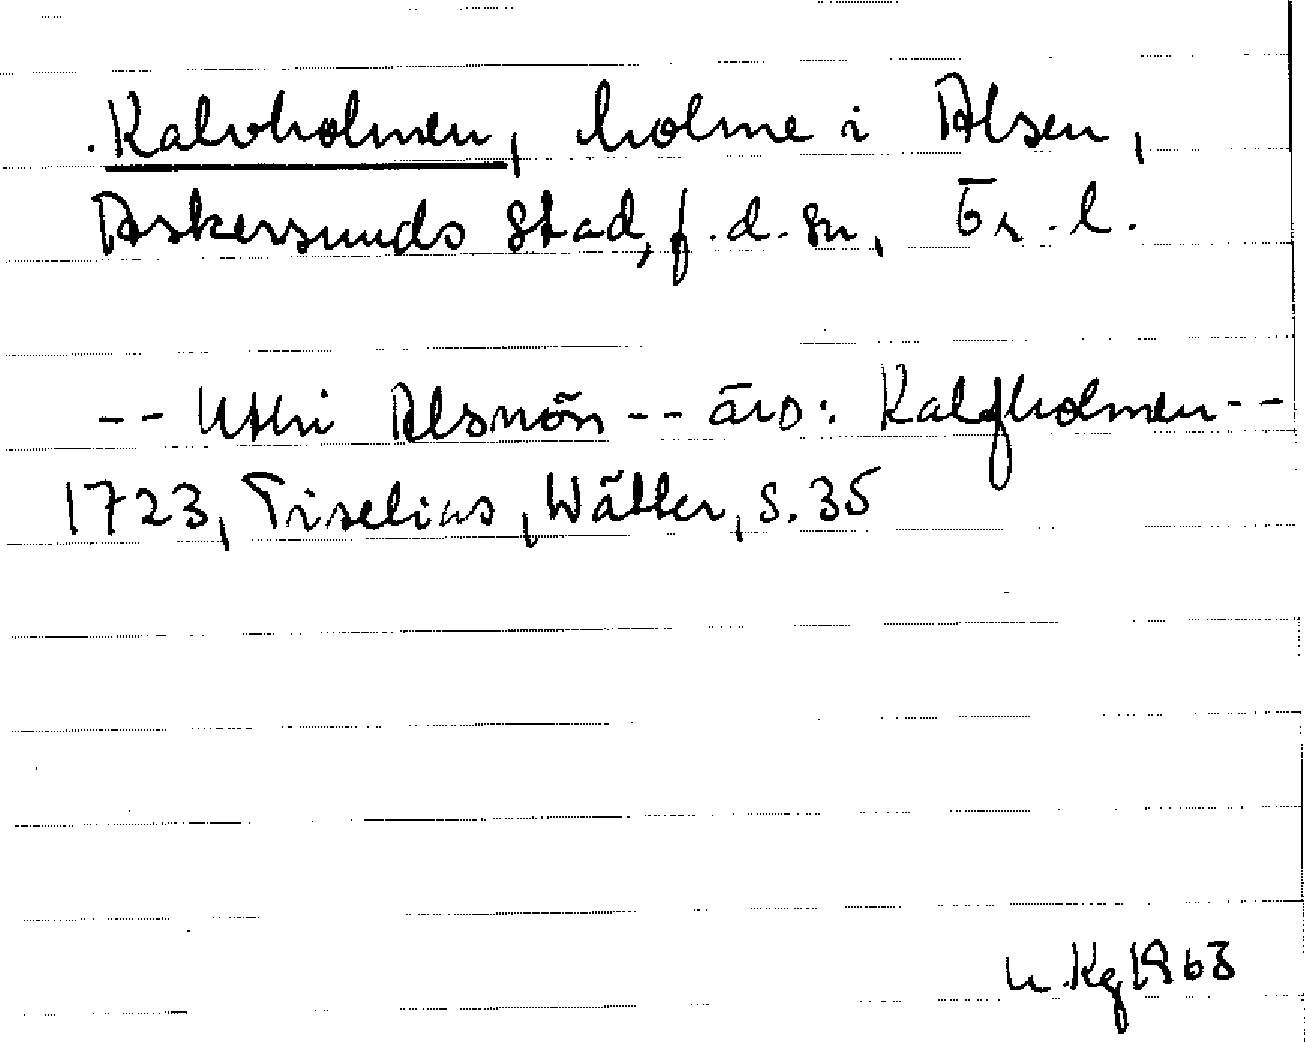 Kalvholmen, holme i Alsen,
Askersunds stad, f.d. sn, Ör. l.
-- Uthi Alsnön -- äro: Kalfholmen --
1723, Tiselius, Wätter, s. 35
Kg 1963